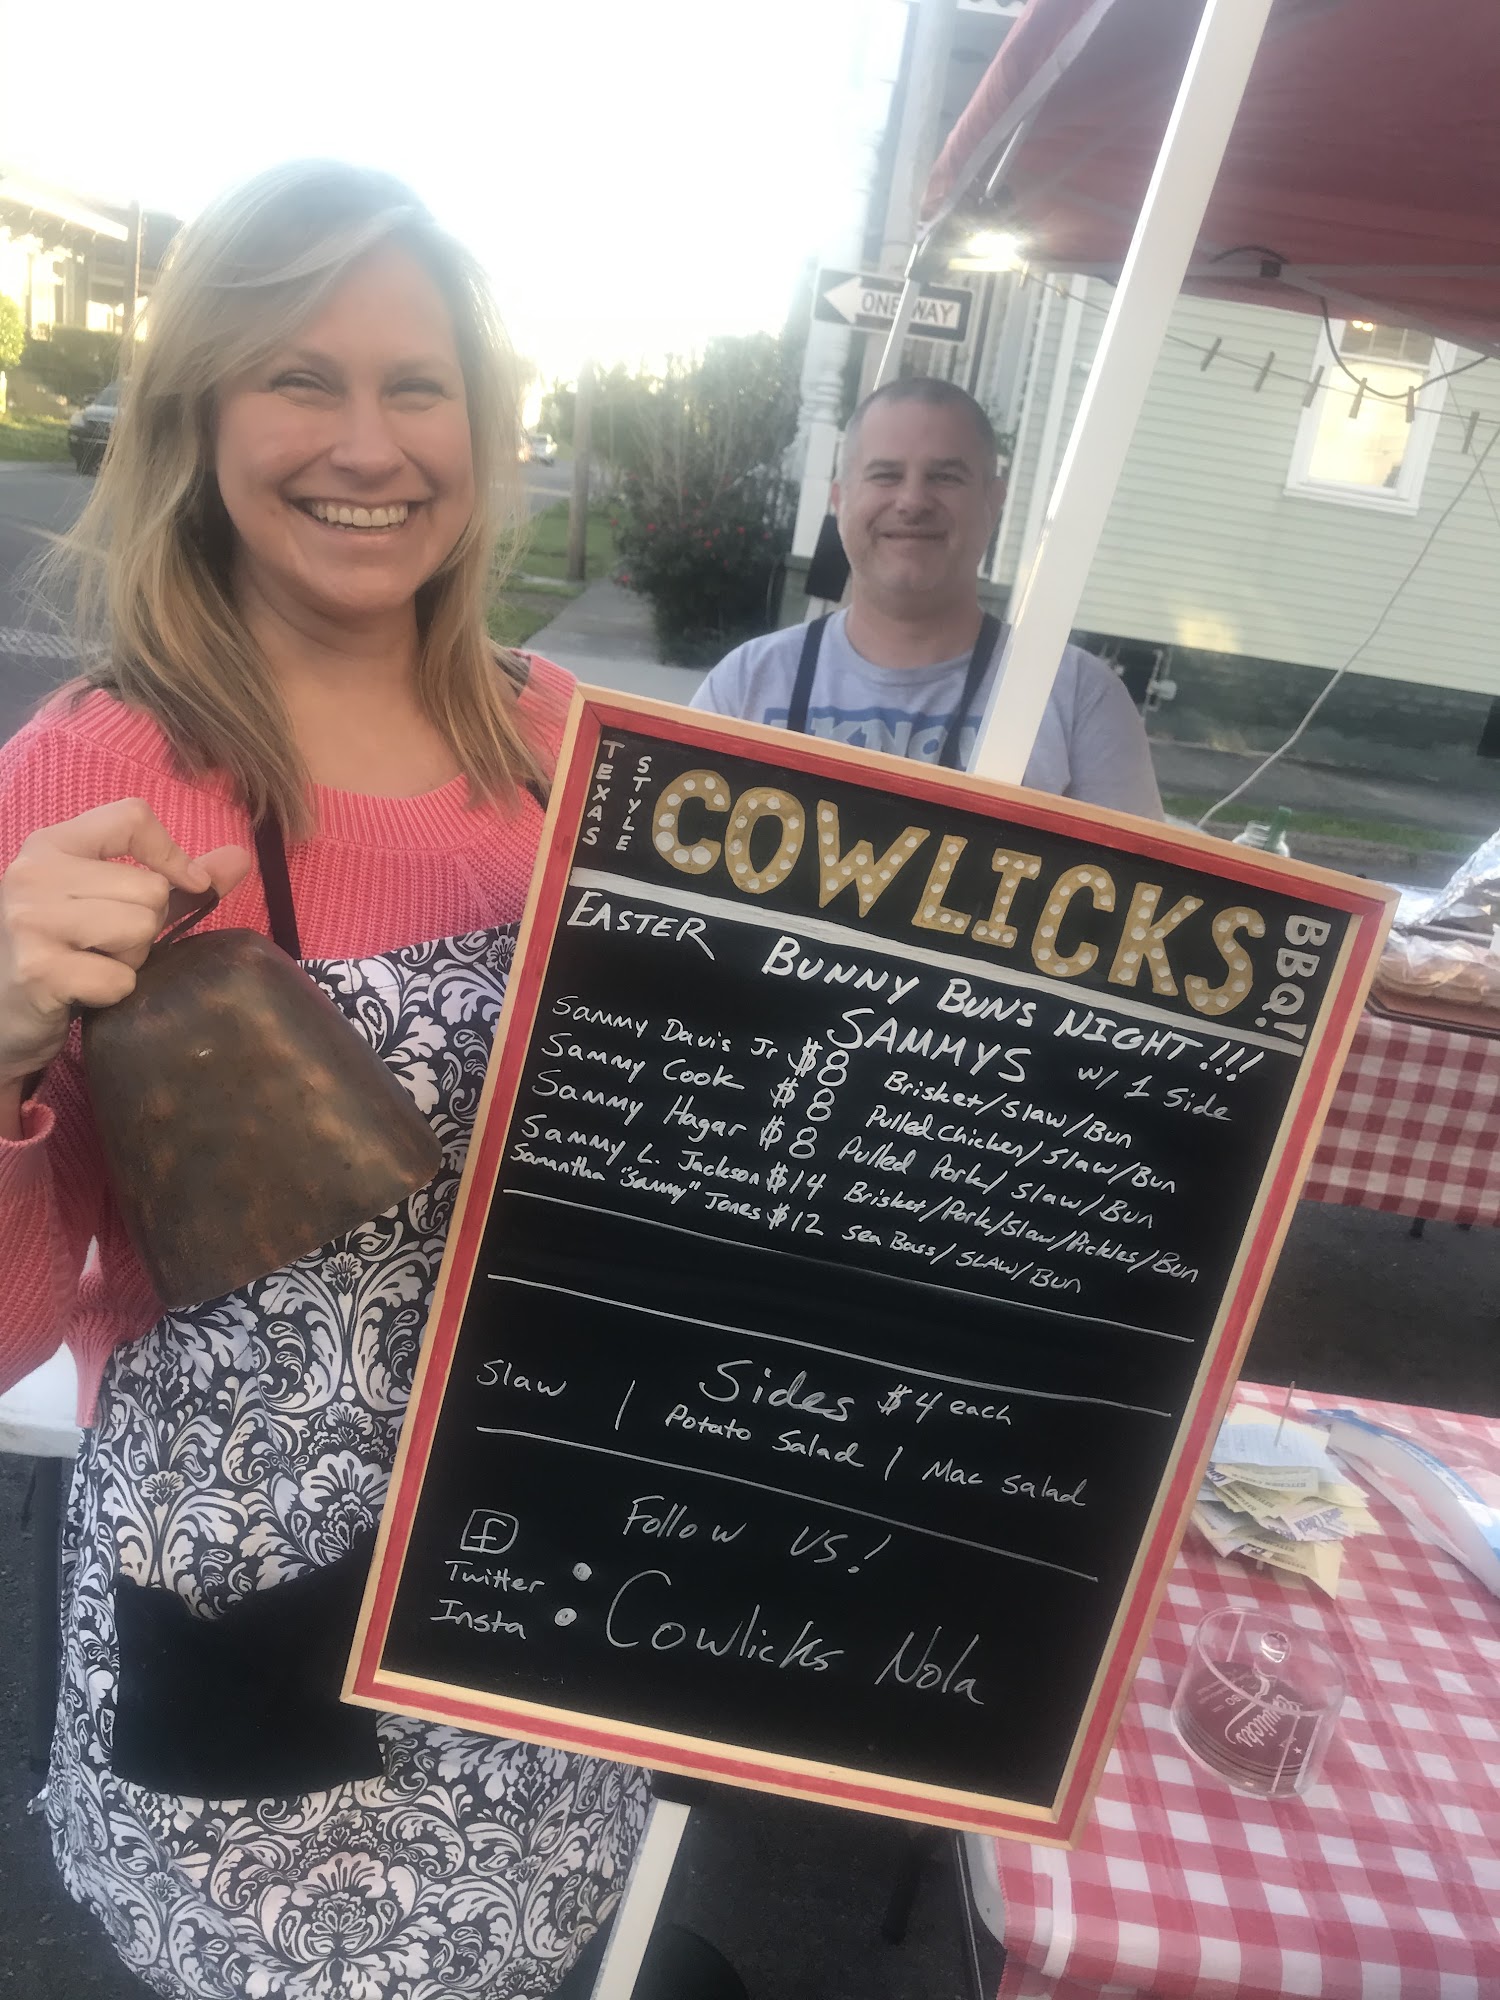 ONE WAY
I KNOW
TEXAS STYLE
COWLICKS
BBQ!
EASTER BUNNY BUNS NIGHT!!!
SAMMYS w/ 1 Side
Sammy Davis Jr $8 Brisket/Slaw/Bun
Sammy Cook $8 Pulled Chicken/Slaw/Bun
Sammy Hagar $8 Pulled Pork/Slaw/Bun
Sammy L. Jackson $14 Brisket/Pork/Slaw/Pickles/Bun
Samantha "Sammy" Jones $12 Sea Bass/SLAW/Bun
Sides $4 each
Slaw | Potato Salad | Mac Salad
Follow US!
f
Twitter
Insta
: Cowlicks Nola
Cowlicks